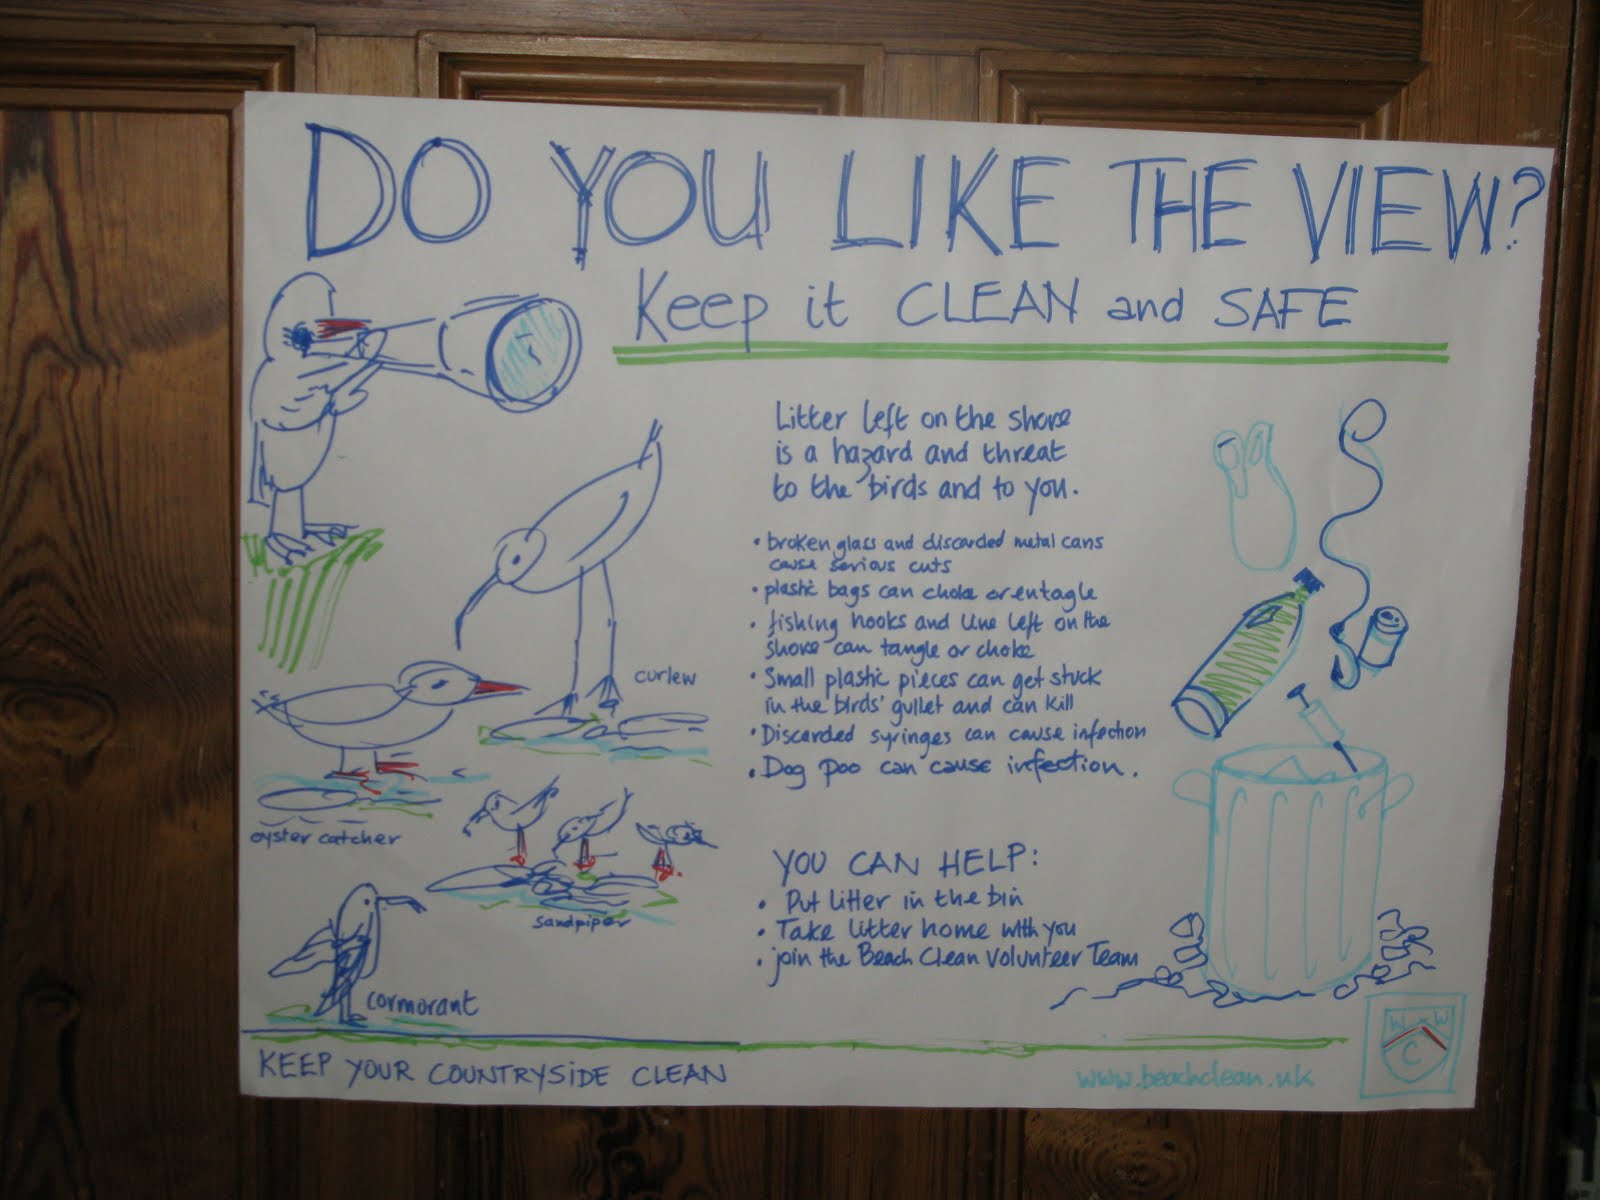 DO YOU LIKE THE VIEW?
Keep it CLEAN and SAFE
Litter left on the shore
is a hazard and threat
to the birds and to you.
• broken glass and discarded metal cans
cause serious cuts
• plastic bags can choke or entagle
• fishing hooks and line left on the
shore can tangle or choke
• Small plastic pieces can get stuck
in the birds' gullet and can kill
• Discarded syringes can cause infection
• Dog poo can cause infection.
curlew
oyster catcher
sandpiper
cormorant
YOU CAN HELP:
• Put litter in the bin
• Take litter home with you
• join the Beach Clean Volunteer Team
KEEP YOUR COUNTRYSIDE CLEAN
www.beachclean.uk
W W
C